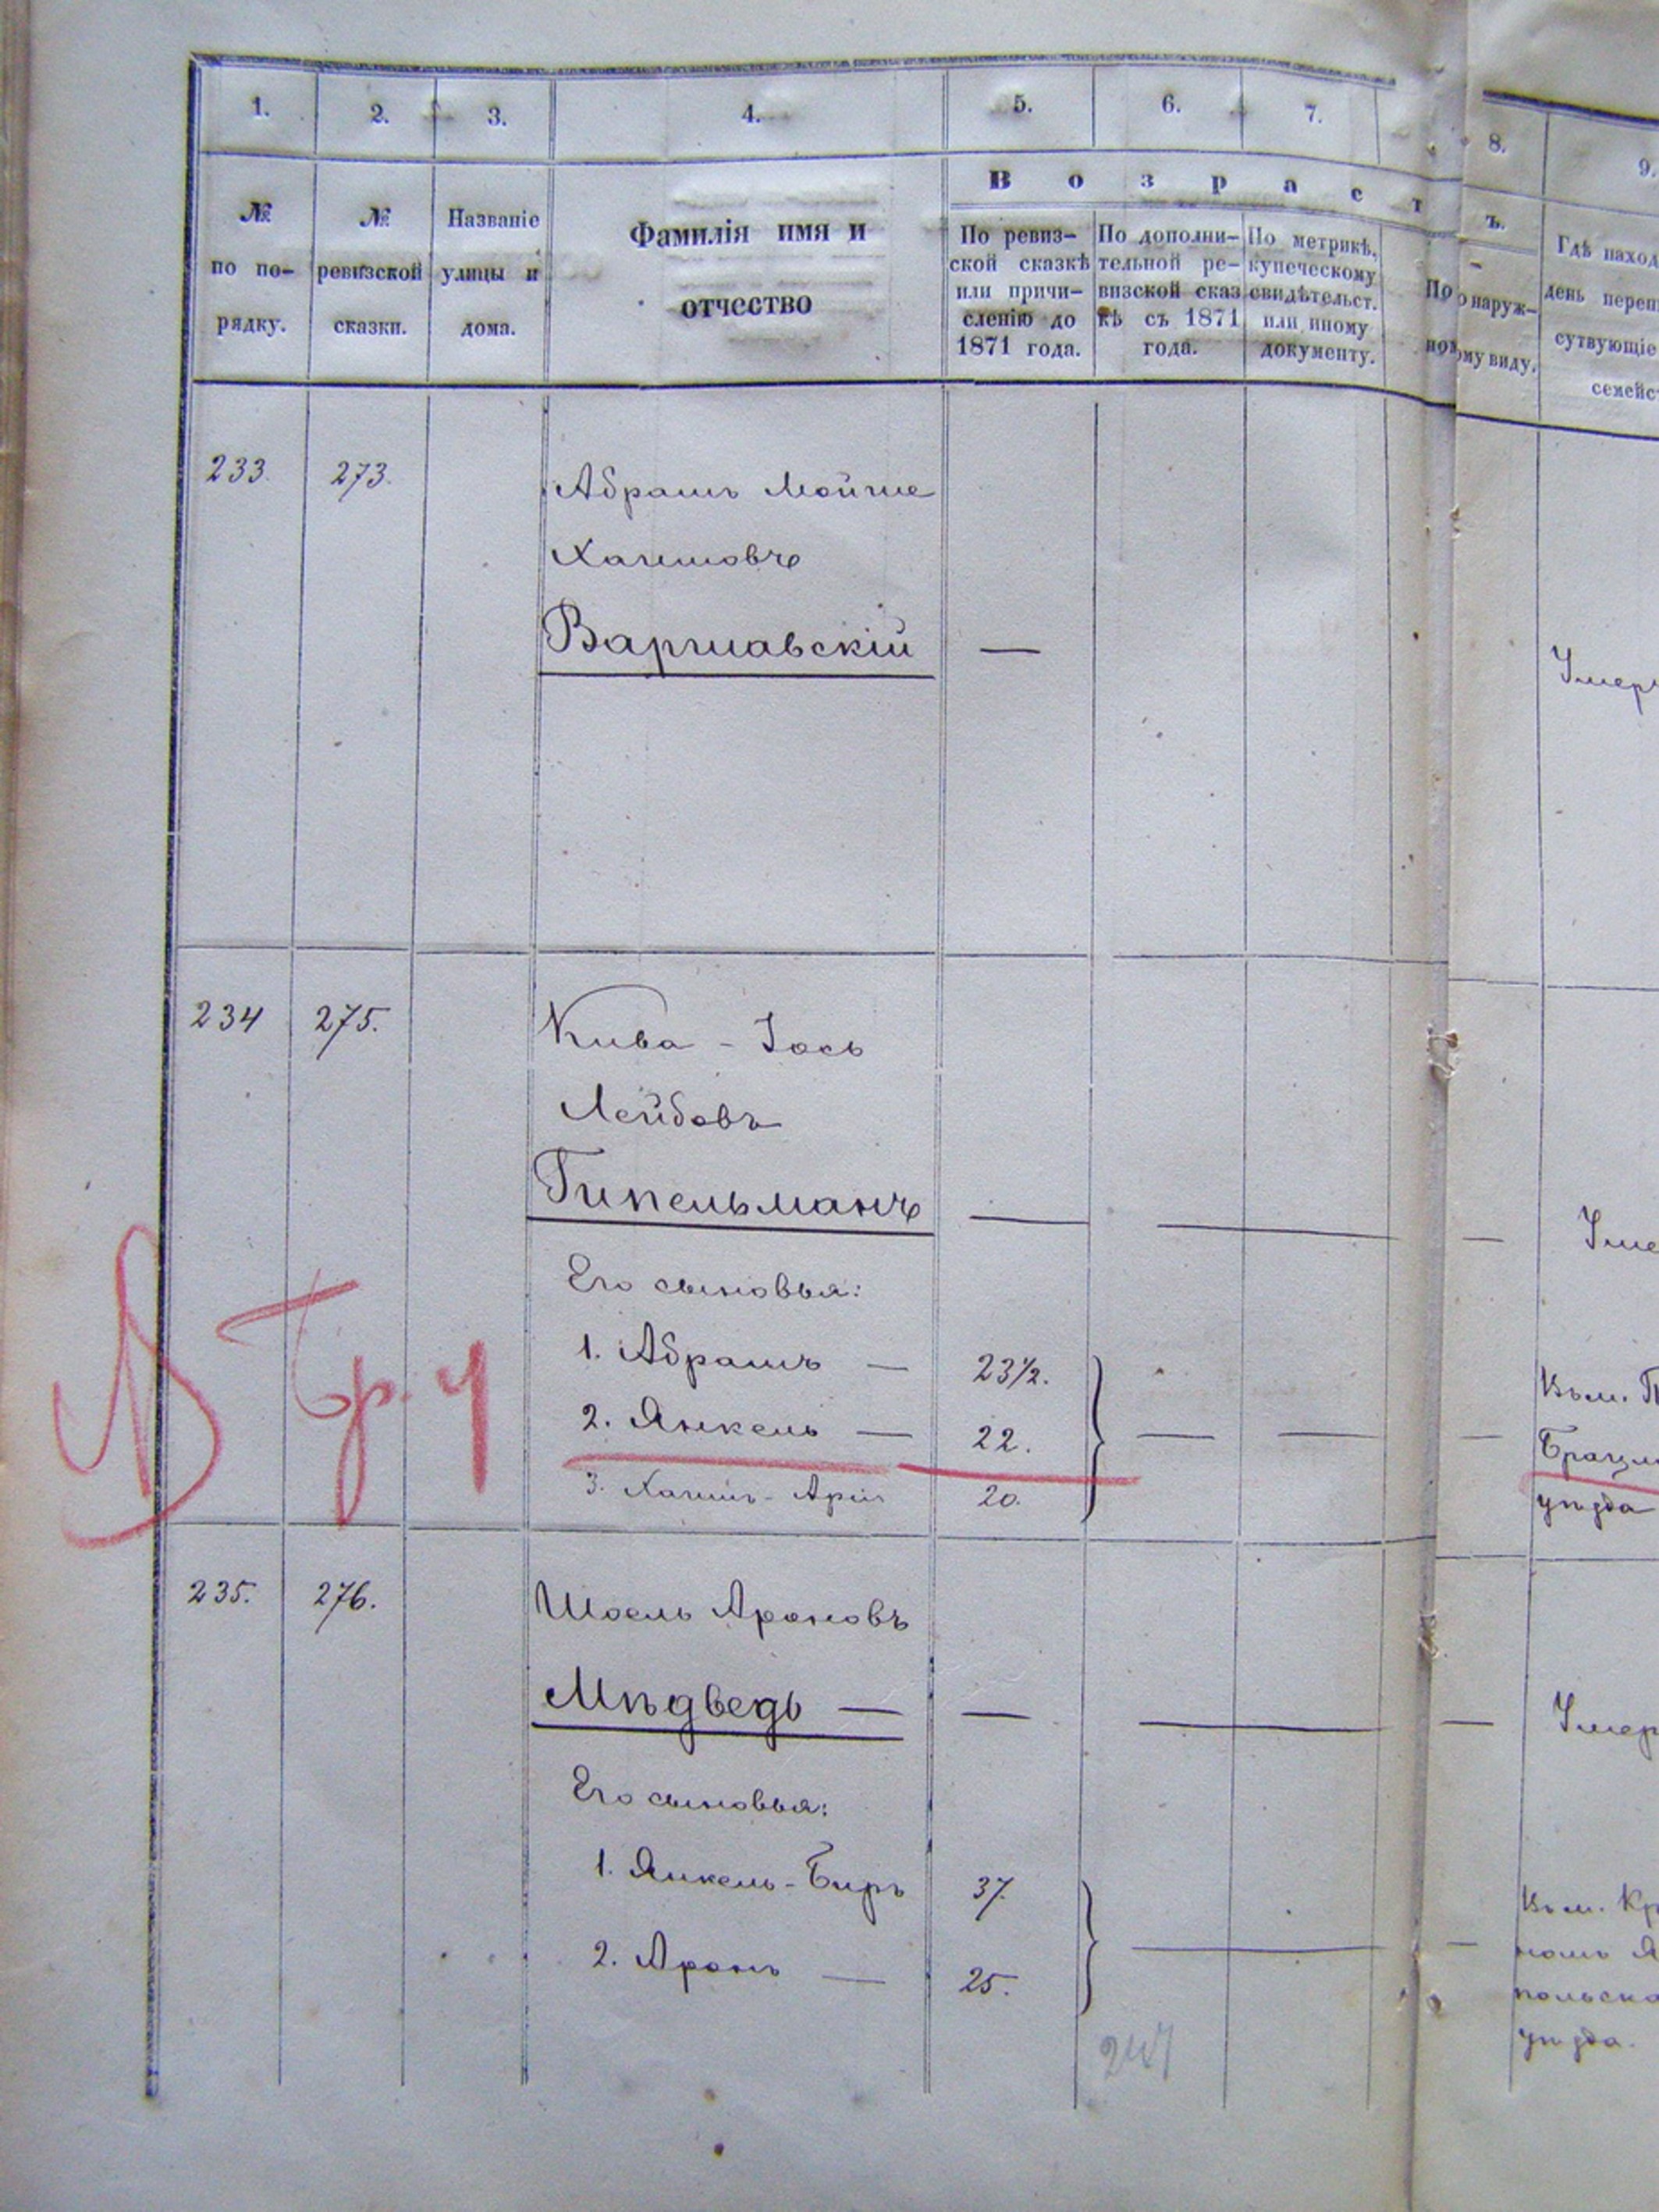 1. 2. 3. 4. 5. 6. 7. 8. 9.
Возрастъ.
№ по порядку.
№ ревизской сказки.
Названіе улицы и дома.
Фамилія имя и отчество
По ревиз-
ской сказкѣ
или причи-
сленію до
1871 года.
По дополни-
тельной ре-
визской сказ
кѣ съ 1871
года.
По метрикѣ,
купеческому
свидѣтельст.
или иному
документу.
По наруж-
ному виду.
Гдѣ наход
день переп
сутвующіе
семейс
233. 273. Абрамъ Мойше
Хаимовъ
Варшавскій —
Умер
234 275. Кива - Іось
Лейбовъ
Гипельманъ — — —
Уме
Его сыновья:
1. Абрамъ — 23½.
2. Янкель — 22. — — —
3. Хаимъ - Арія 20.
Въ м. П
Брацл
уѣзда
В Бр. у
235. 276. Шоель Ароновъ
Мѣдведь — — — —
Умер
Его сыновья:
1. Янкель - Беръ 37.
2. Аронъ — 25. — —
Въ м. Кр
номъ Я
польска
уѣзда.
247